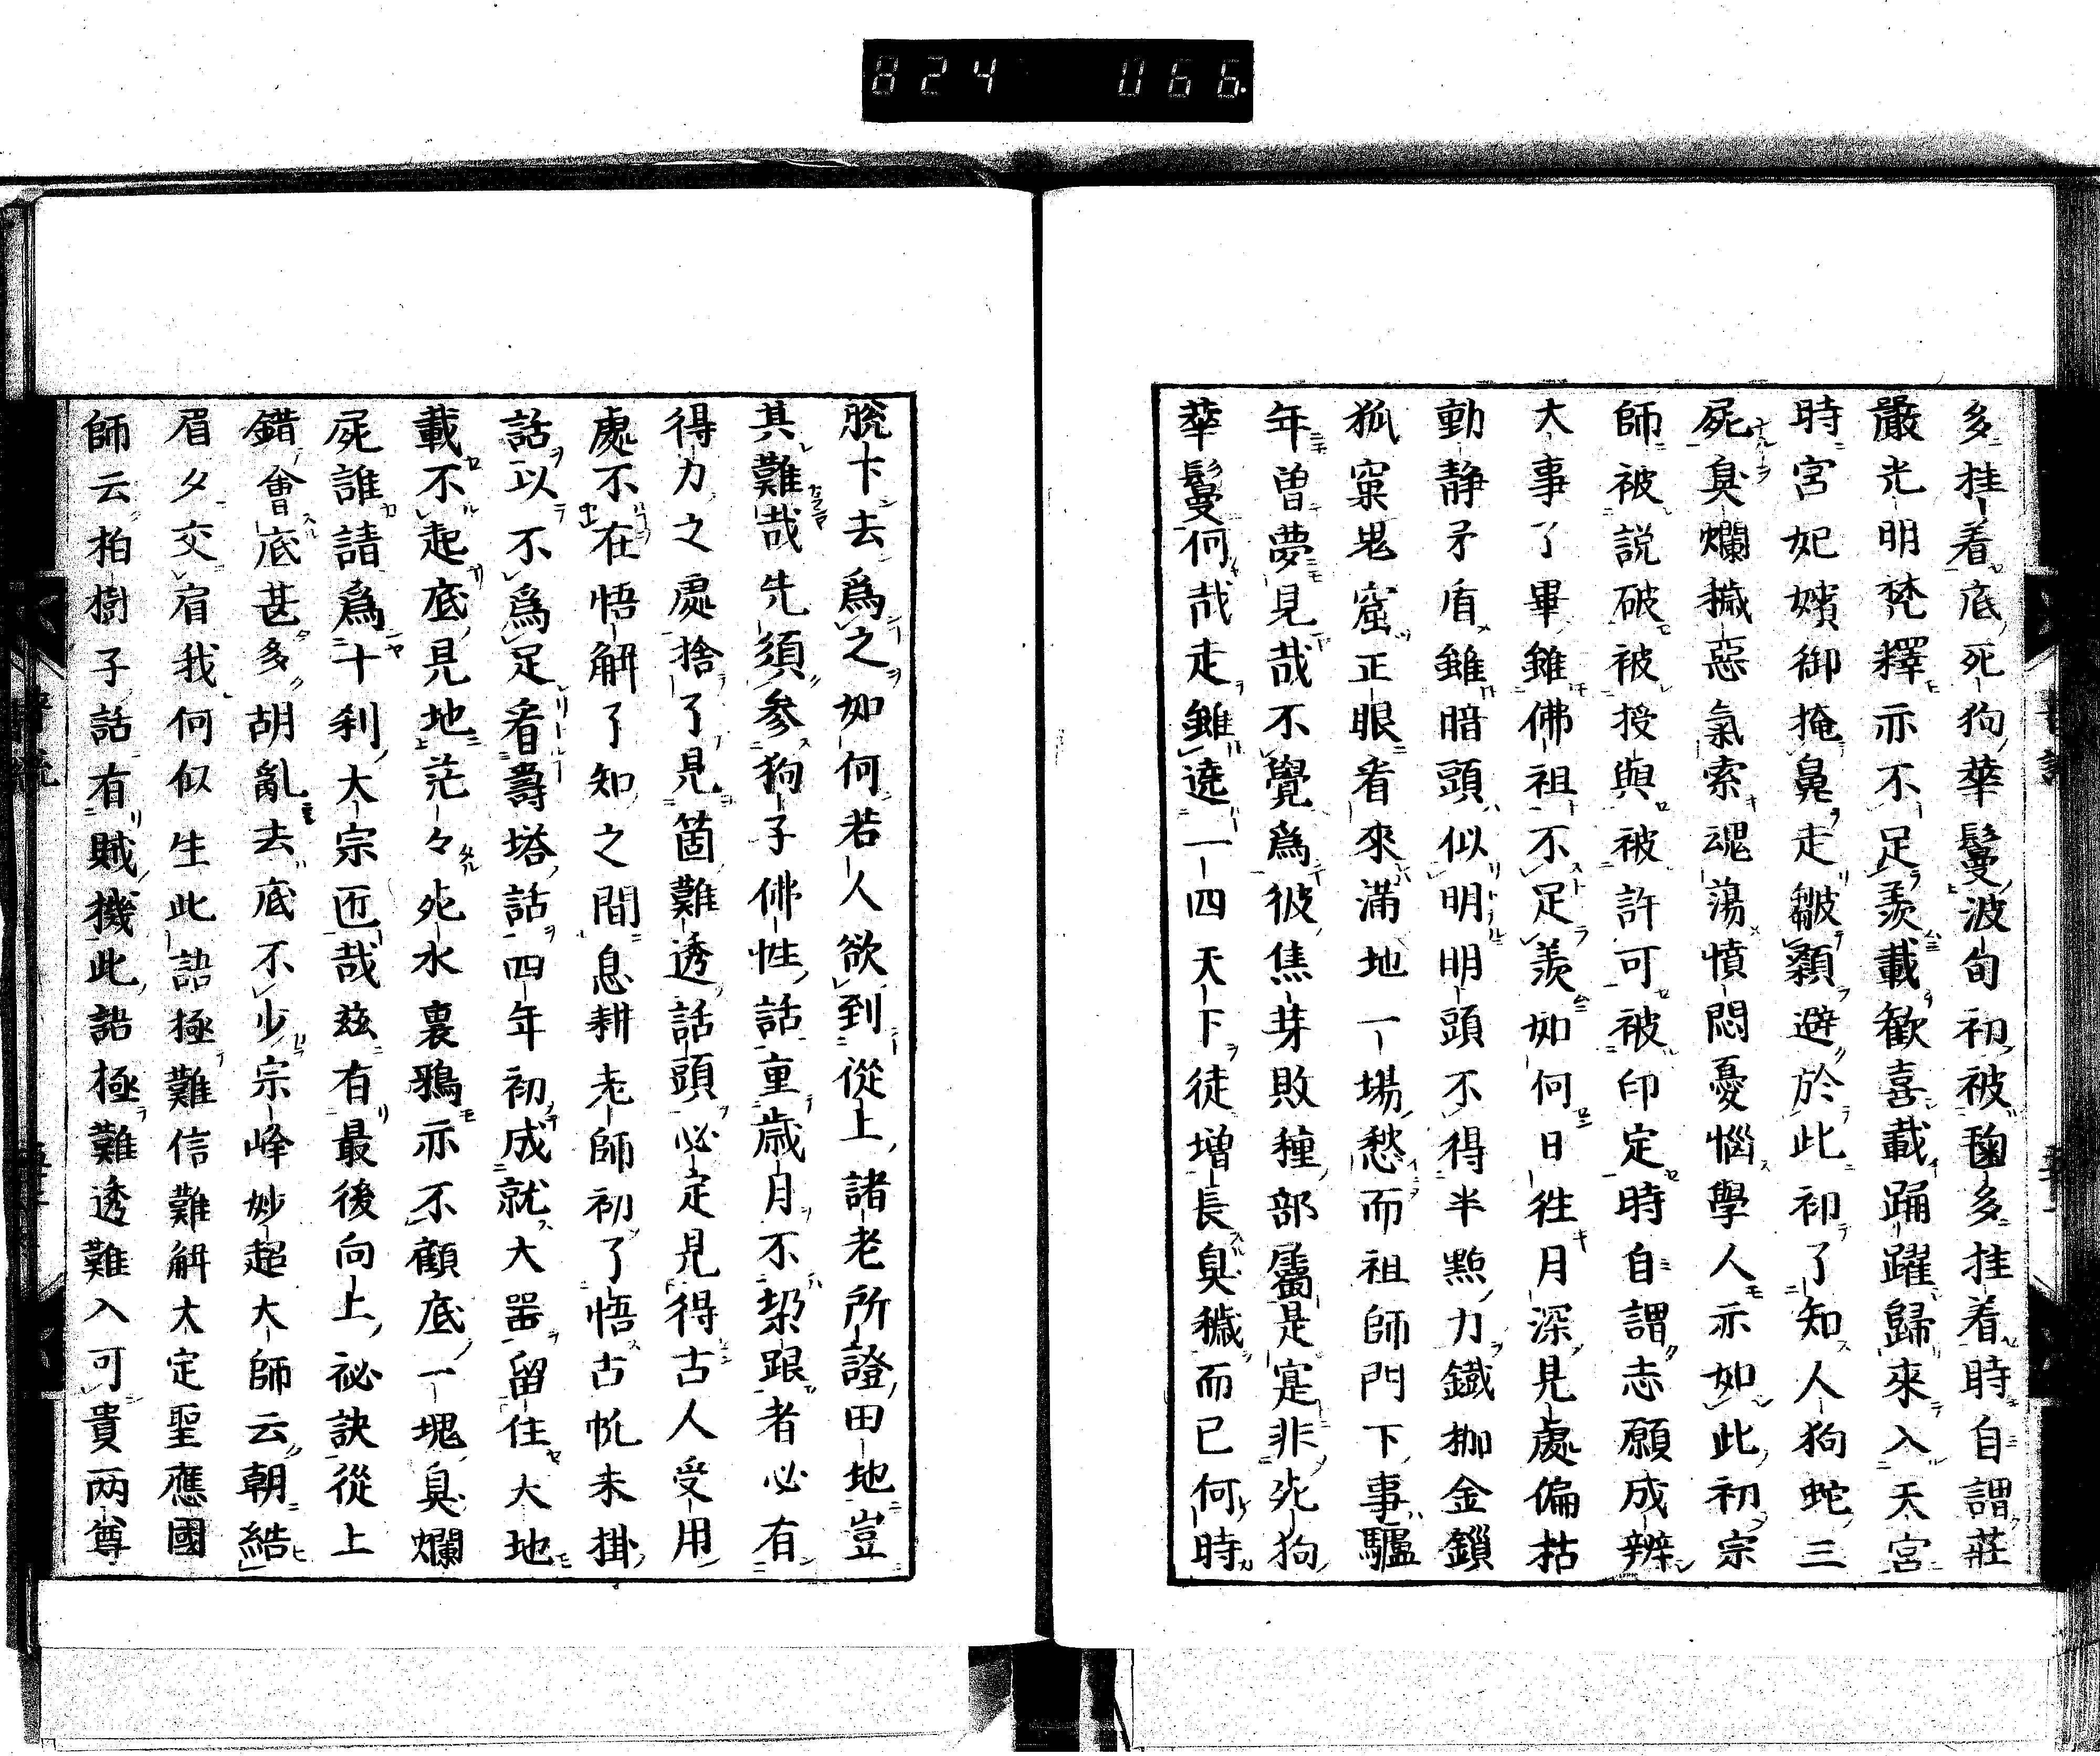 824 066
多挂着底死狗華鬘波旬初被毱多挂着時自謂莊
嚴光明梵釋亦不足羨載歡喜載踊躍歸來入天宮
時宮妃嬪御掩鼻走皺顙避於此初了知人狗蛇三
屍臭爛穢惡氣索魂蕩憤悶憂惱學人亦如此初宗
師被説破被授與被許可被印定時自謂志願成辨
大事了畢雖佛祖不足羨如何日往月深見處偏枯
動静矛盾雖暗頭似明明頭不得半點力鐵枷金鎖
狐窠鬼窟正眼看來滿地一場愁而祖師門下事驢
年曾夢見哉不覺爲彼焦芽敗種部屬是寔非死狗
華鬘何哉走雖遶一四天下徒増長臭穢而已何時
脱卞去爲之如何若人欲到從上諸老所證田地豈
其難哉先須參狗子佛性話重歳月不栔跟者必有
得力之處捨了見箇難透話頭必定見得古人受用
處不在悟解了知之間息耕老師初了悟古帆未掛
話以不爲足看壽塔話四年初成就大噐留住大地
載不起底見地茫々死水裏鴉亦不顧底一塊臭爛
屍誰請爲十刹大宗匠哉兹有最後向上祕訣從上
錯會底甚多胡亂去底不少宗峰妙超大師云朝結
眉夕交肩我何似生此語極難信難解大定聖應國
師云柏樹子話有賊機此語極難透難入可貴兩尊